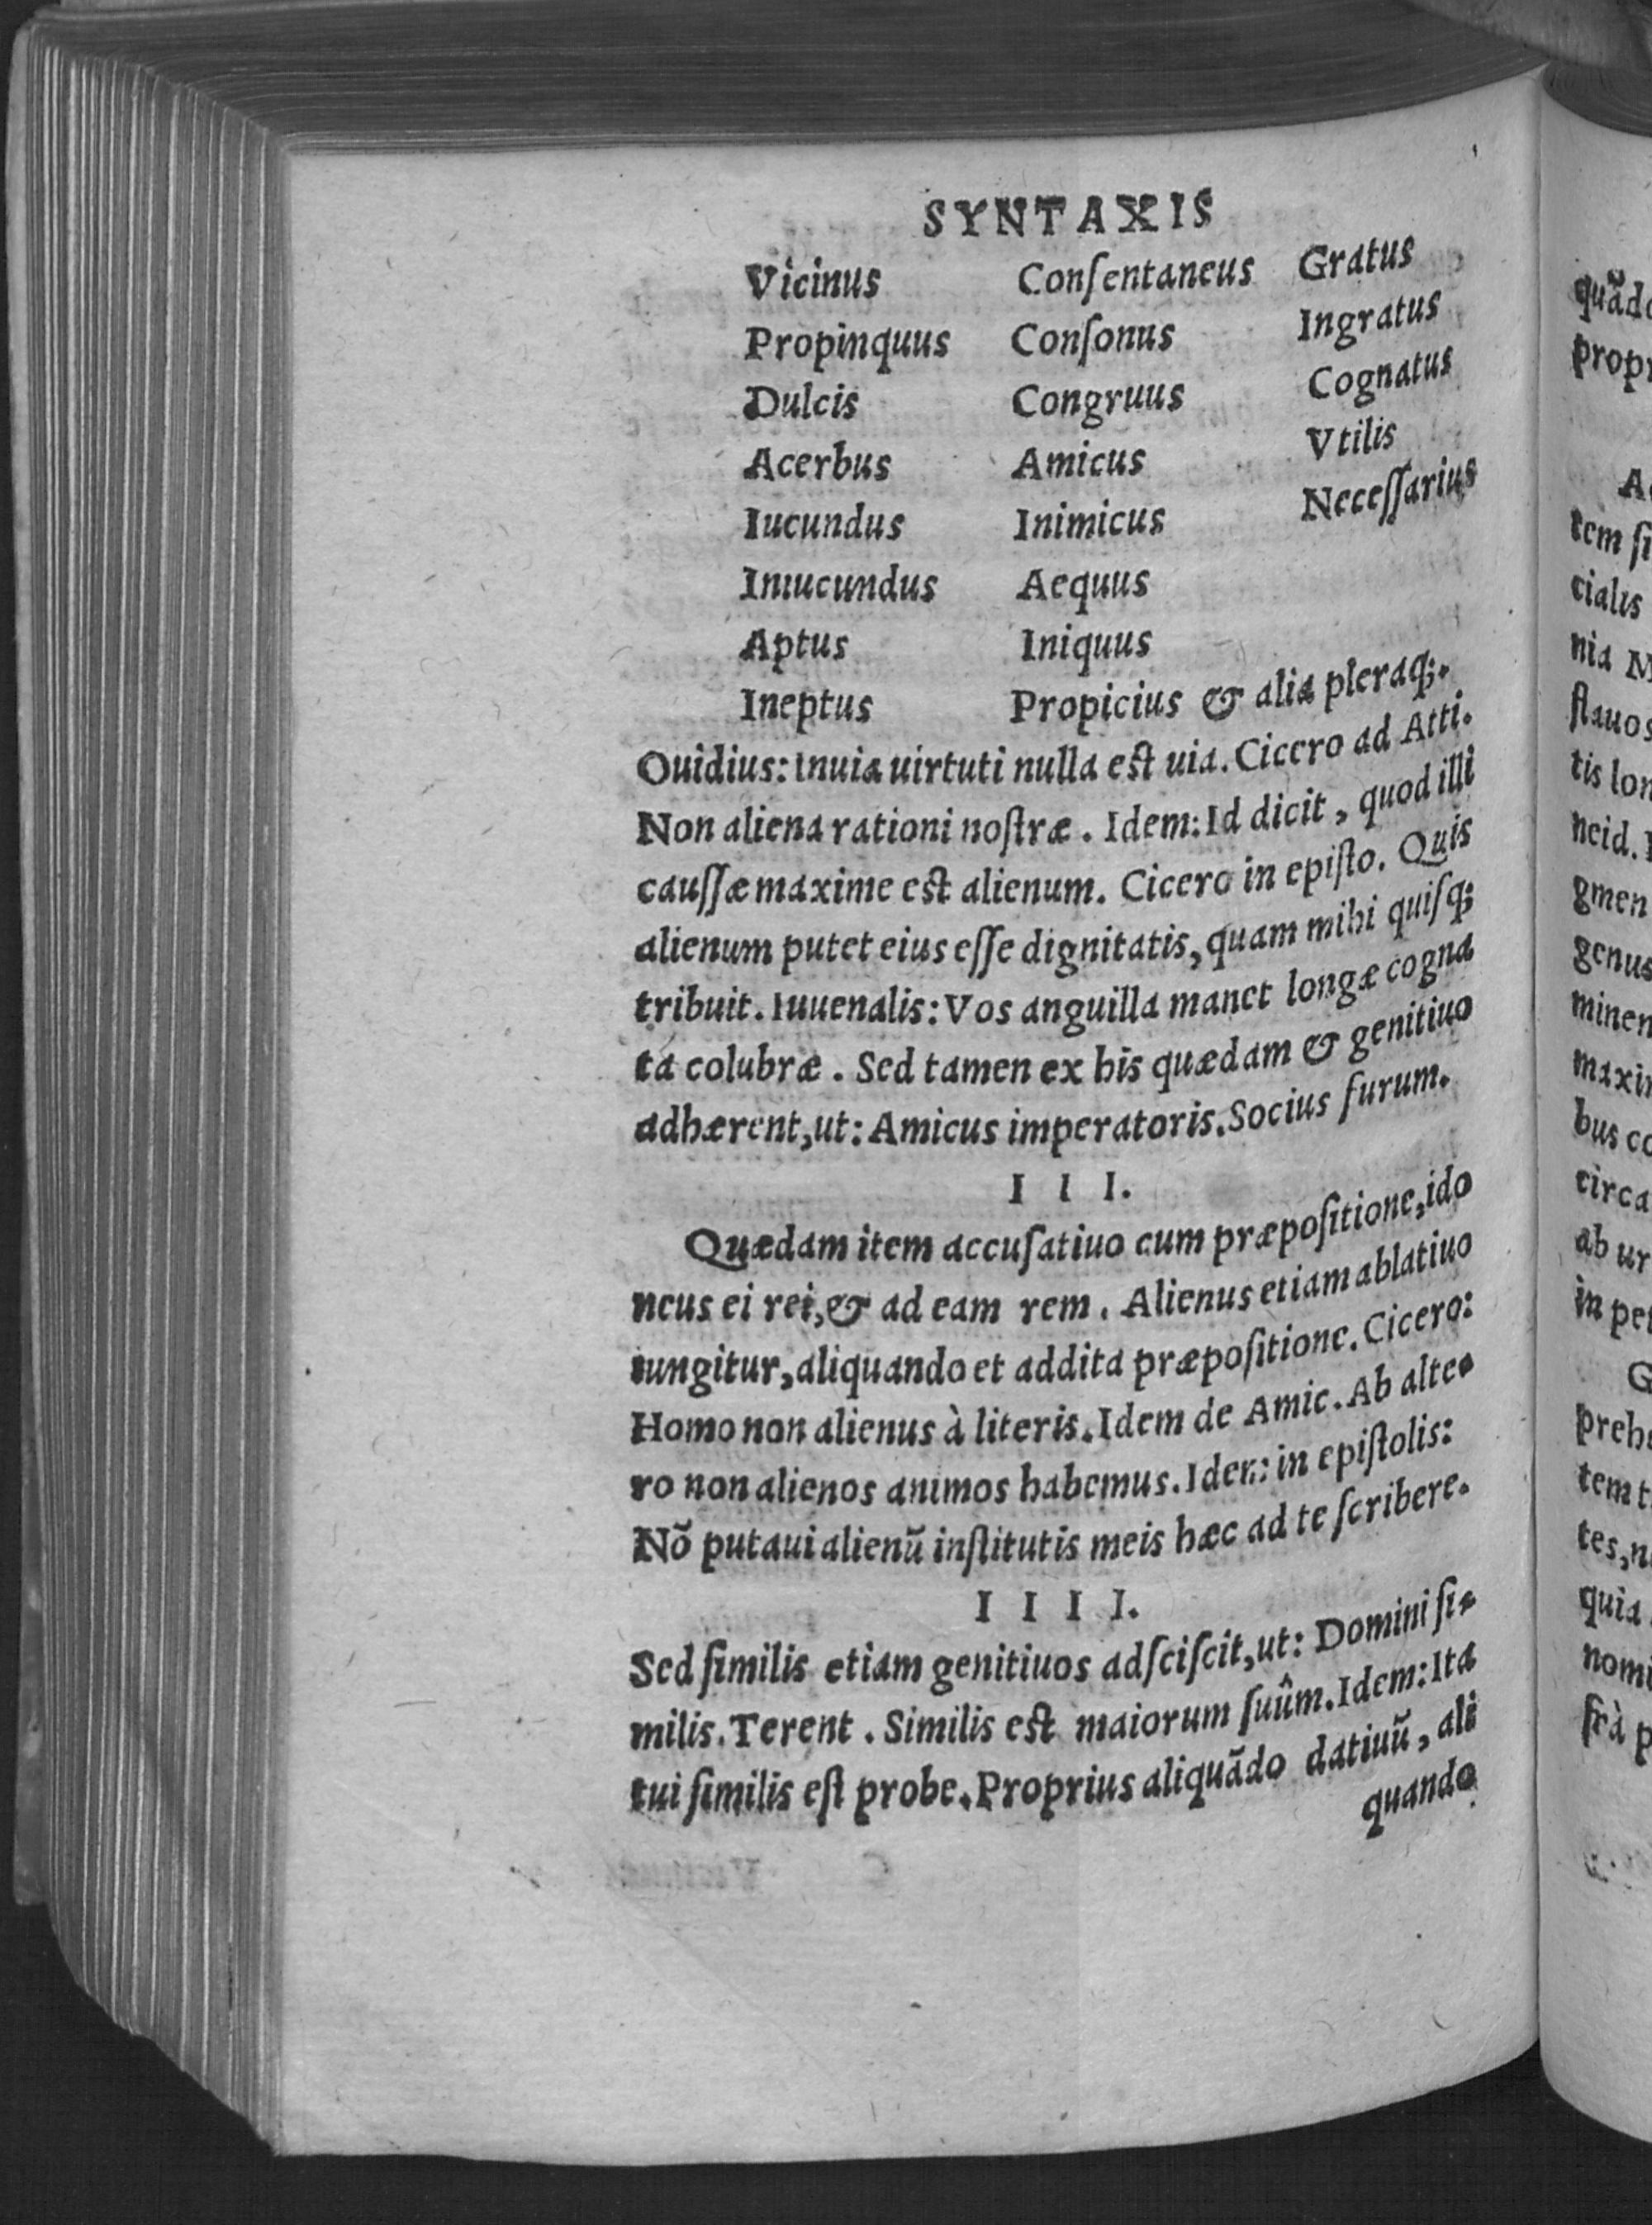 SYNTAXIS
Vicinus Conſentaneus Gratus
Propinquus Conſonus Ingratus
Dulcis Congruus Cognatus
Acerbus Amicus Vtilis
Iucundus Inimicus Neceſſarius
Iniucundus Aequus
Aptus Iniquus
Ineptus Propicius & alia pleraq;.
Ouidius: Inuia uirtuti nulla est uia. Cicero ad Atti.
Non aliena rationi noſtræ. Idem: Id dicit, quod illi
cauſſæ maxime est alienum. Cicero in epiſto. Quis
alienum putet eius eſſe dignitatis, quam mihi quiſq;
tribuit. Iuuenalis: Vos anguilla manet longæ cogna
ta colubræ. Sed tamen ex his quædam & genitiuo
adhærent, ut: Amicus imperatoris. Socius furum.
I I I.
Quædam item accuſatiuo cum præpoſitione, ido
neus ei rei, & ad eam rem. Alienus etiam ablatiuo
iungitur, aliquando et addita præpoſitione. Cicero:
Homo non alienus à literis. Idem de Amic. Ab alte-
ro non alienos animos habemus. Idem: in epiſtolis:
Nõ putaui alienũ inſtitutis meis hæc ad te ſcribere.
I I I I.
Sed ſimilis etiam genitiuos adſciſcit, ut: Domini ſi-
milis. Terent. Similis est maiorum ſuûm. Idem: Ita
tui ſimilis eſt probe. Proprius aliquãdo datiuũ, ali
quando
quãdo
tem ſi
cialis
nia M
flauos
tis lon
neid.
gmen
genus
minen
maxi
bus co
circa
ab ur
in pe
prehe
tem t
tes, n
quia
nomi
ſtrà p